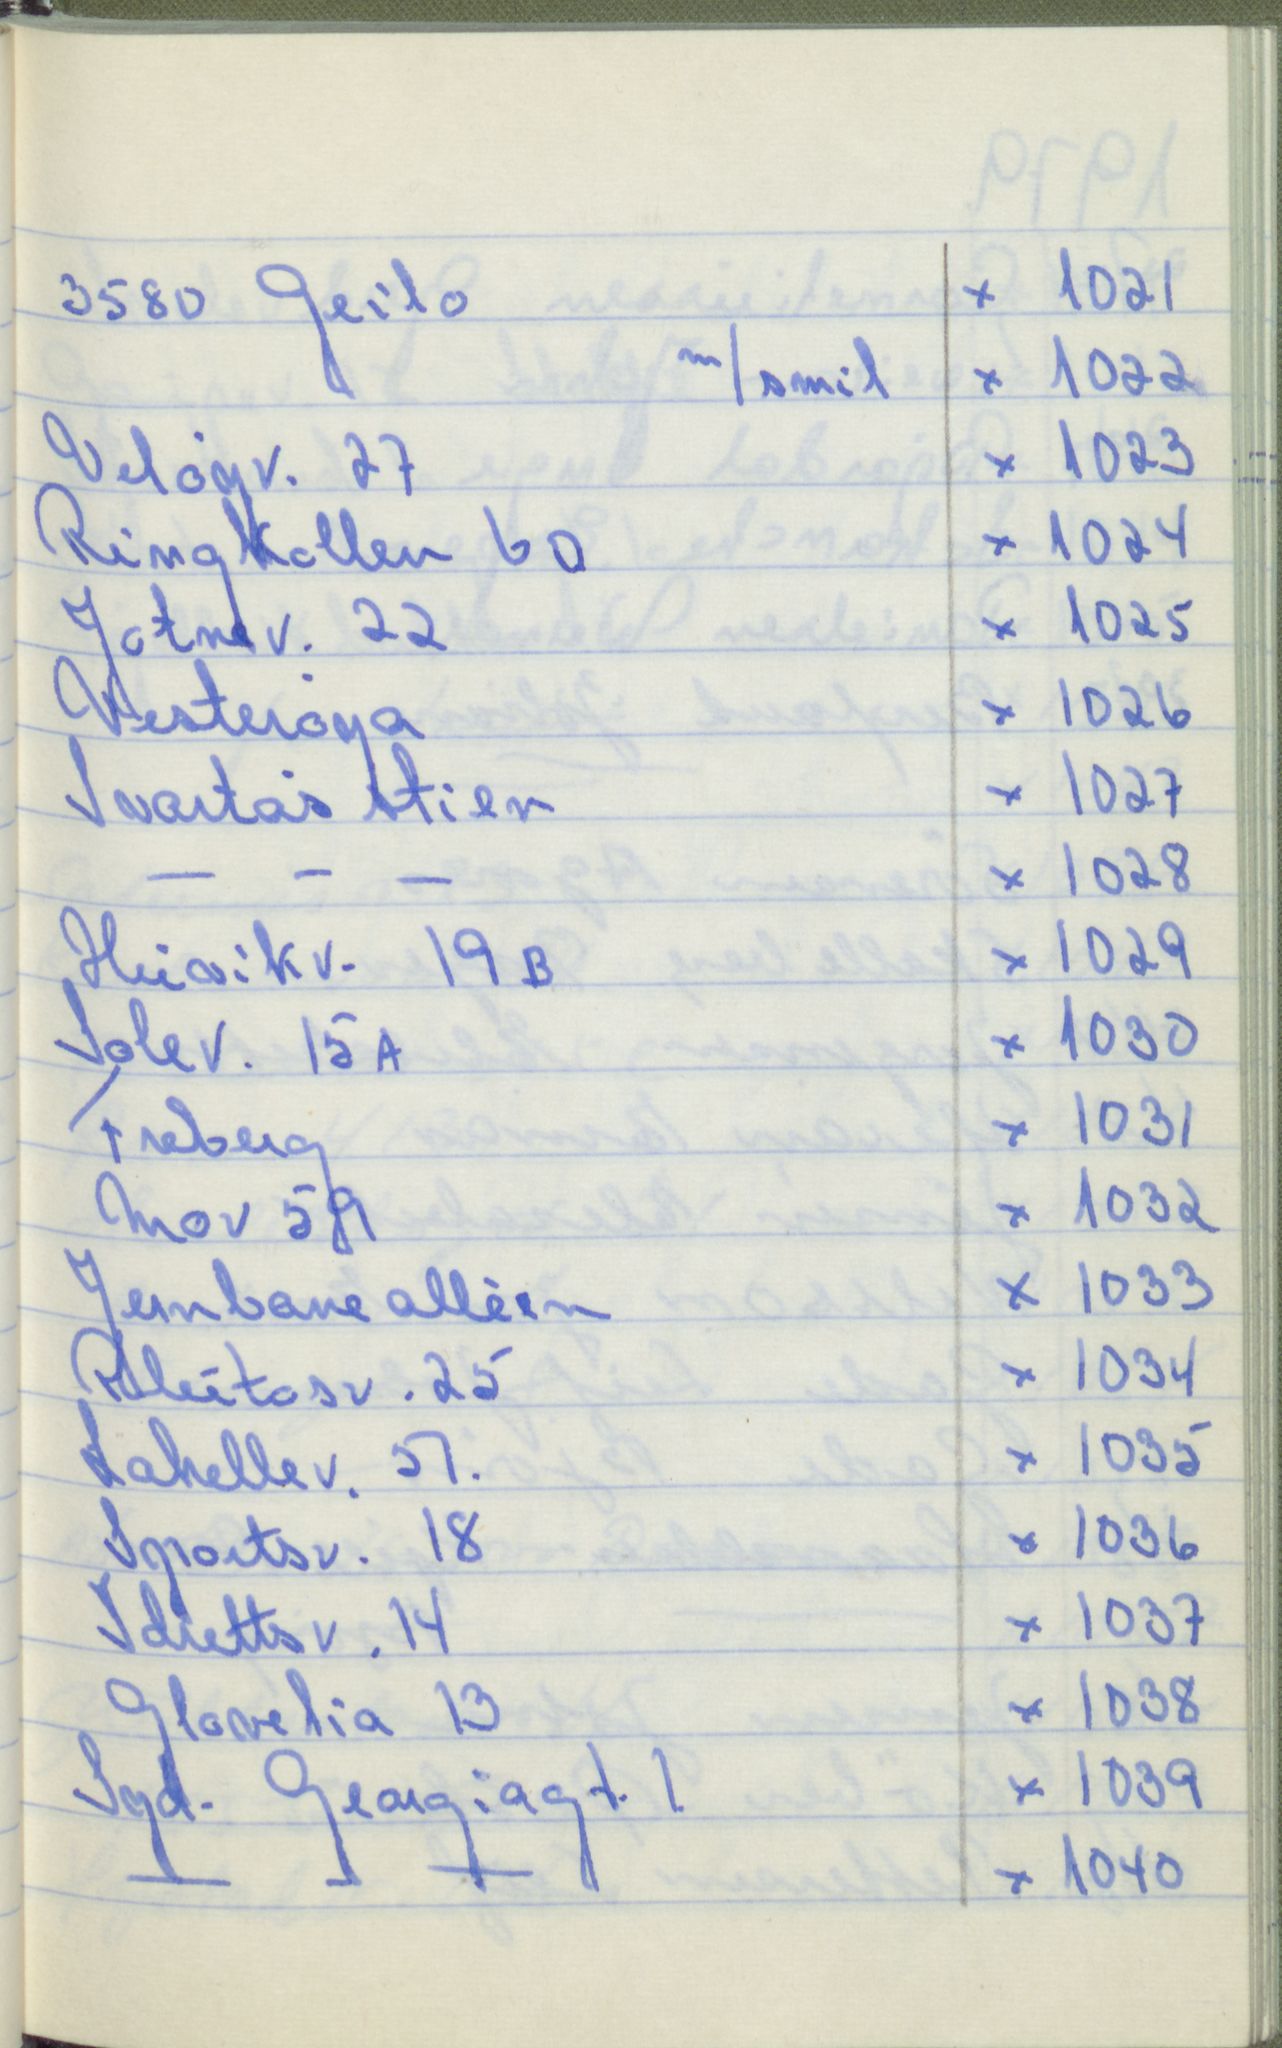 3580 Geilo x 1021
m/smil x 1022
Veløyv. 27 x 1023
Ringkollen 60 x 1024
Jotnev. 22 x 1025
Vesterøya x 1026
Svartås stien x 1027
— – — x 1028
x 1029
Solev. 15A x 1030
Freberg x 1031
Mov 59 x 1032
Jernbanealléen x 1033
25 x 1034
Lahellev. 57. x 1035
Sportsv. 18 x 1036
Idrettsv. 14 x 1037
13 x 1038
Syd. Georgiagt. 1 x 1039
— – — x 1040